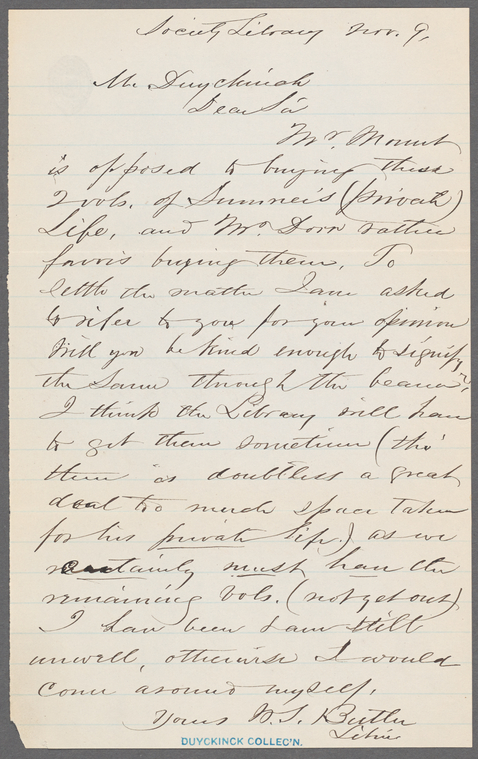 Society Library Nov. 9,
Mr. Duyckinck
Dear Sir
Mr. Mount
is opposed to buying these
2 vols. of Sumner's (private)
Life, and Mr. Dorr rather
favors buying them. To
settle the matter I am asked
to refer to you for your opinion
Will you be kind enough to signify
the same through the bearer,
I think the Library will have
to get them sometime (tho'
there is doubtless a great
deal too much space taken
for his private life.) as we
certainly must have the
remaining vols. (not yet out)
I have been & am still
unwell, otherwise I would
come around myself.
Yours W. S. Butler
Libn
DUYCKINCK COLLEC'N.